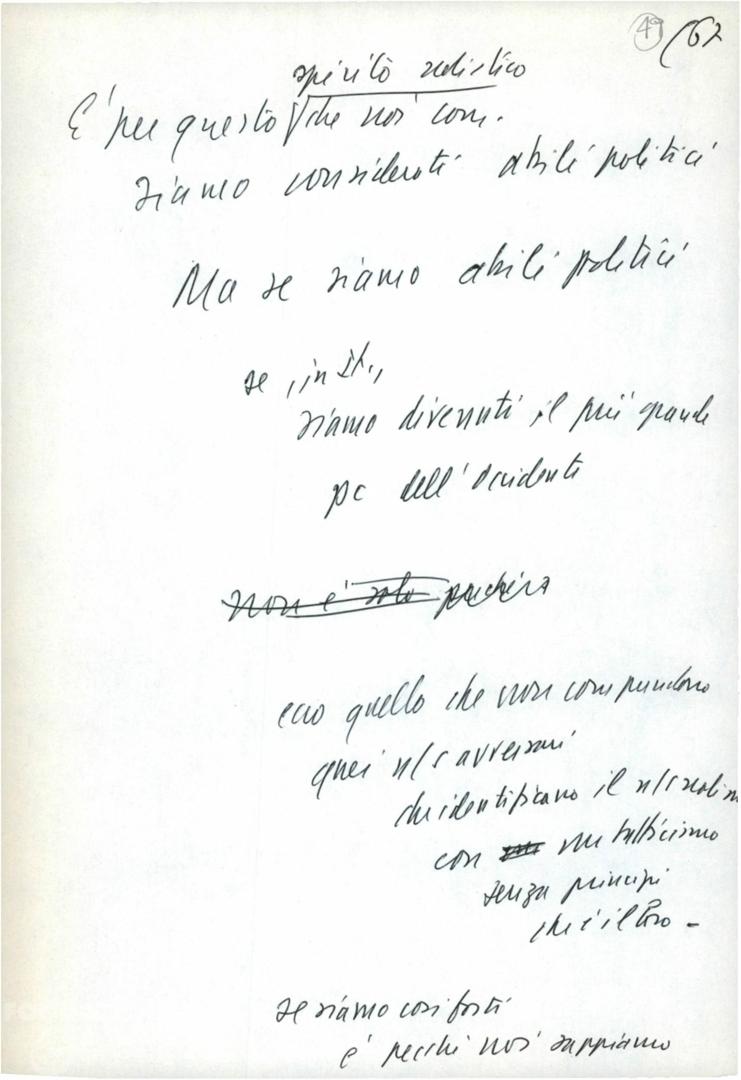 49 (62
spirito realistico
E' per questo che noi com.
siamo considerati abili politici
Ma se siamo abili politici
se, in It.,
siamo divenuti il più grande
pc dell'Occidente
non è solo perchè
ecco quello che non comprendono
quei n/s avversari
che identificano il n/s realism
con un tatticismo
senza principi
che è il loro -
se siamo così forti
è perchè noi sappiamo